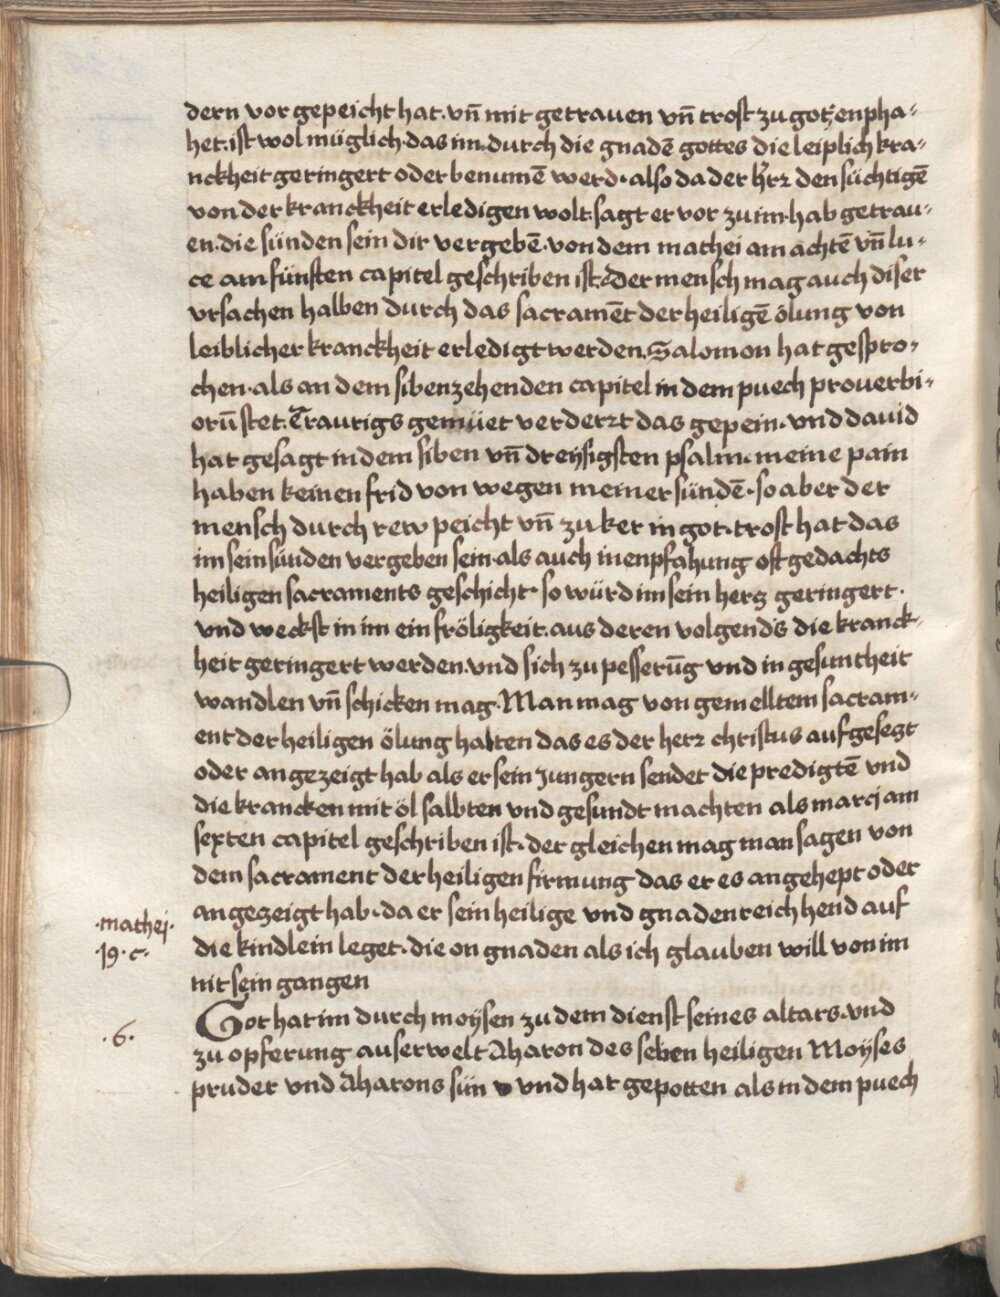 dern vor gepeicht hat. vn̄ mit getrauen vn̄ trost zu got, enpha⸗
het. ist wol müglich. das im. durch die gnadē gottes die leiplich kra⸗
nckheit geringert oder benumē werd. also da der herr den süchtigē
von der kranckheit erledigen wolt. sagt er vor zu im. hab getrau⸗
en. die sünden sein dir vergebē. von dem mathei am achtē vn̄ lu⸗
ce am fünften capitel geschriben ist. der mensch mag auch diser
vrsachen halben durch das sacramēt der heiligē ölung von
leiblicher kranckheit erledigt werden. Salomon hat gespro⸗
chen. als an dem sibenzehenden capitel in dem puech proverbi⸗
orū stet. Traurigs gemüet verderzt das gepein. vnd dauid
hat gesagt in dem siben vn̄ dreysigsten psalm. meine pain
haben keinen frid von wegen meiner sündē. so aber der
mensch durch rew peicht vn̄ zu ker in got. trost hat das
im sein sünden vergeben sein. als auch in enpfahung oft gedachts
heiligen sacraments geschicht. so würd im sein herz geringert.
vnd weckst in im ein fröligkeit. aus deren volgends die kranck⸗
heit geringert werden. vnd sich zu pesserūg vnd in gesuntheit
wandlen vn̄ schicken mag. Man mag von gemelltem sacram⸗
ent der heiligen ölung halten das es der herr christus aufgesezt
oder angezeigt hab als er sein Jungern sendet die predigtē vnd
die krancken mit öl salbten vnd gesundt machten als marcj am
sexten capitel geschriben ist. der gleichen mag man sagen von
dem sacrament der heiligen firmung das er es angehept oder
angezeigt hab. da er sein heilige vnd gnadenreich hend auf
die kindlein leget. die on gnaden als ich glauben will von im
nit sein gangen
.mathej.
19. c.
.6.
Got hat im durch moÿsen zu dem dienst seines altars. vnd
zu opferung auserwelt Aharon des selben heiligen Moÿses
pruder vnd Aharons sün vnd hat gepotten als in dem puech